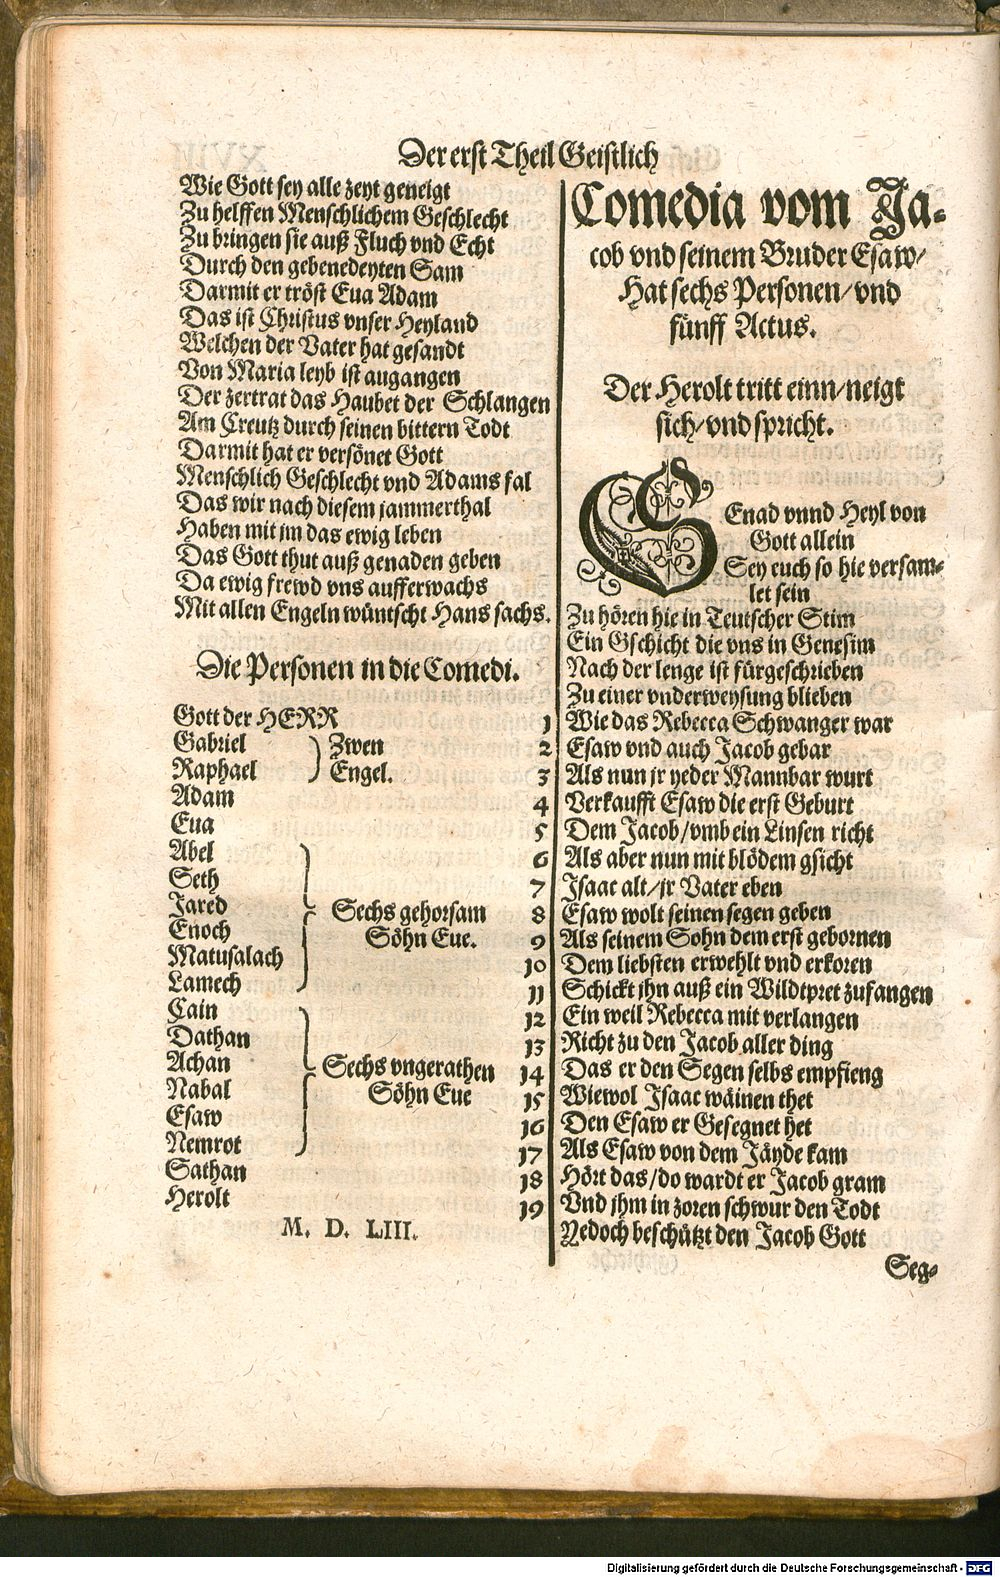 Der erst Theil Geistlich
Wie Gott sey alle zeyt geneigt
Zu helffen Menschlichem Geschlecht
Zu bringen sie auß Fluch vnd Echt
Durch den gebenedeyten Sam
Darmit er tröst Eua Adam
Das ist Christus vnser Heyland
Welchen der Vater hat gesandt
Von Maria leyb ist augangen
Der zertrat das Haubet der Schlangen
Am Creutz durch seinen bittern Todt
Darmit hat er versönet Gott
Menschlich Geschlecht vnd Adams fal
Das wir nach diesem jammerthal
Haben mit jm das ewig leben
Das Gott thut auß genaden geben
Da ewig frewd vns aufferwachs
Mit allen Engeln wüntscht Hans sachs.
Die Personen in die Comedi.
Gott der HERR
Gabriel
Raphael
Zwen
Engel.
Adam
Eua
Abel
Seth
Jared
Enoch
Matusalach
Lamech
Sechs gehorsam
Söhn Eue.
Cain
Dathan
Achan
Nabal
Esaw
Nemrot
Sechs vngerathen
Söhn Eue
Sathan
Herolt
M. D. LIII.
Comedia vom Ja-
cob vnd seinem Bruder Esaw/
Hat sechs Personen/vnd
fünff Actus.
Der Herolt tritt einn/neigt
sich/vnd spricht.
GEnad vnnd Heyl von
Gott allein
Sey euch so hie versam-
let sein
Zu hören hie in Teutscher Stim
Ein Gschicht die vns in Genesim
Nach der lenge ist fürgeschrieben
Zu einer vnderweysung blieben
1 Wie das Rebecca Schwanger war
2 Esaw vnd auch Jacob gebar
3 Als nun jr yeder Mannbar wurt
4 Verkaufft Esaw die erst Geburt
5 Dem Jacob/vmb ein Linsen richt
6 Als aber nun mit blödem gsicht
7 Isaac alt/jr Vater eben
8 Esaw wolt seinen segen geben
9 Als seinem Sohn dem erst gebornen
10 Dem liebsten erwehlt vnd erkoren
11 Schickt jhn auß ein Wildtpret zufangen
12 Ein weil Rebecca mit verlangen
13 Richt zu den Jacob aller ding
14 Das er den Segen selbs empfieng
15 Wiewol Isaac wäinen thet
16 Den Esaw er Gesegnet het
17 Als Esaw von dem Jäyde kam
18 Hört das/do wardt er Jacob gram
19 Vnd jhm in zoren schwur den Todt
Yedoch beschützt den Jacob Gott
Seg-
Digitalisierung gefördert durch die Deutsche Forschungsgemeinschaft - DFG